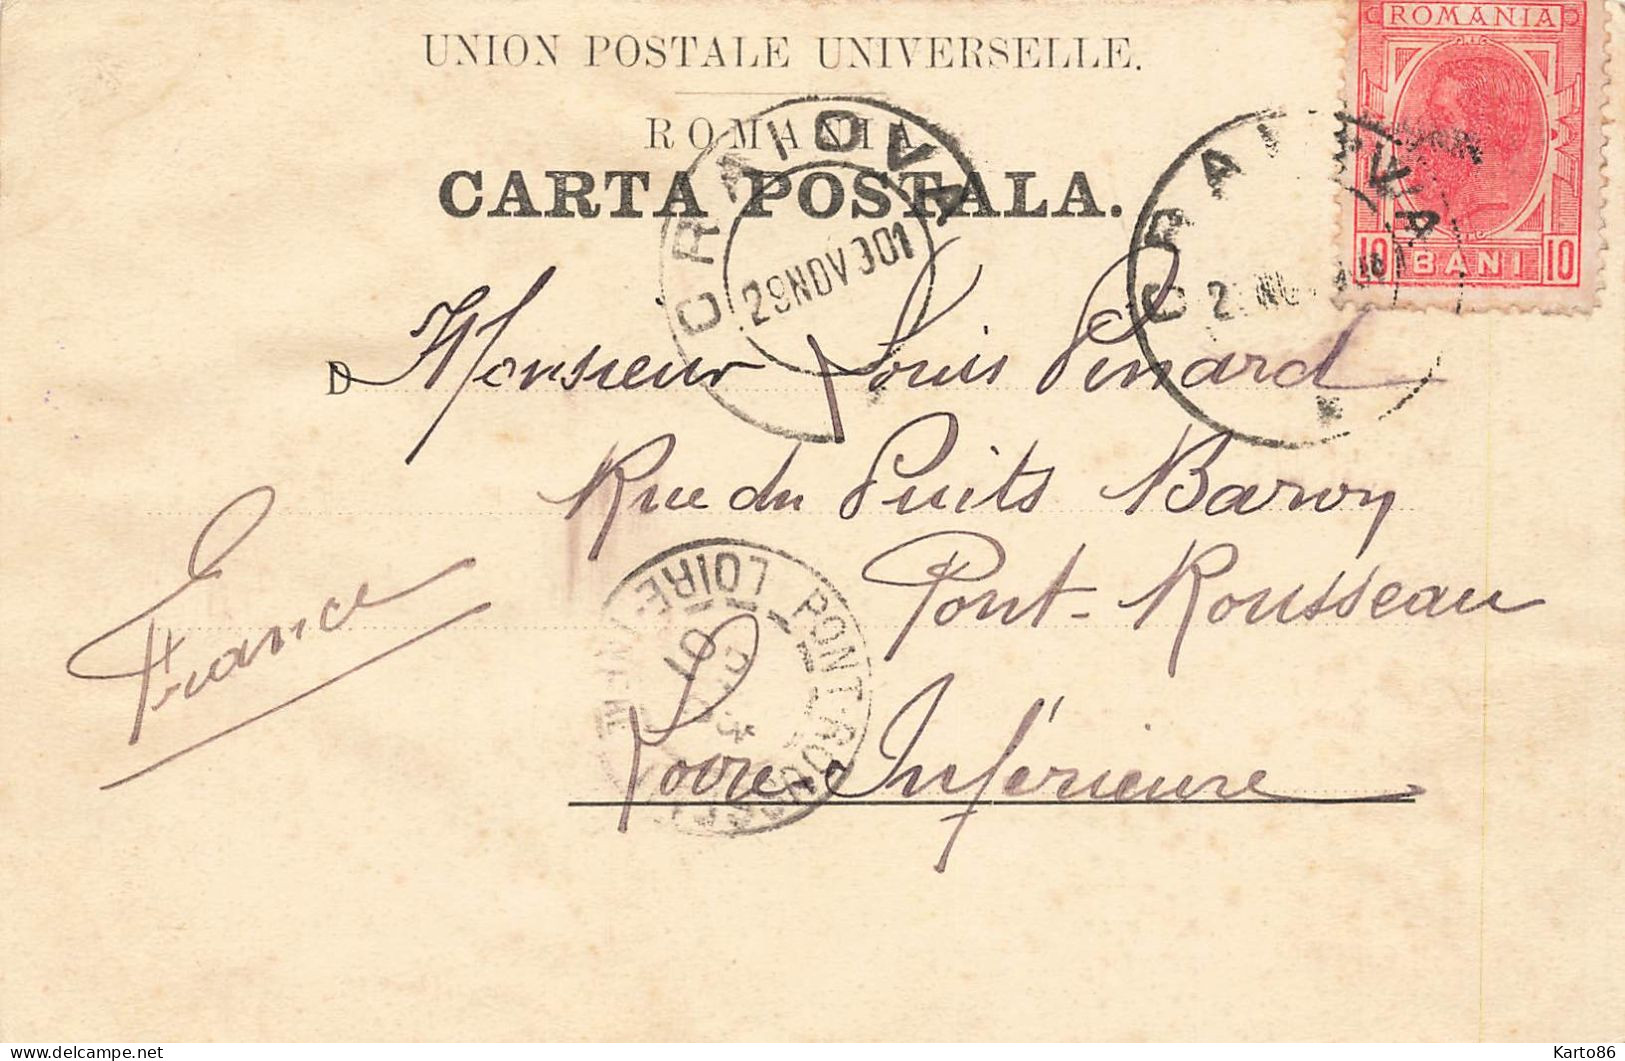 UNION POSTALE UNIVERSELLE.
ROMANIA
CARTA POSTALA.
ROMANIA
10 BANI 10
CRAIOVA
29 NOV 901
CRAIOVA
D Monsieur Louis Pinard
Rue du Puits Baron
Pont-Rousseau
Loire-Inférieure
France
PONT-ROUSSEAU
LOIRE-INFRE
01
Karto86